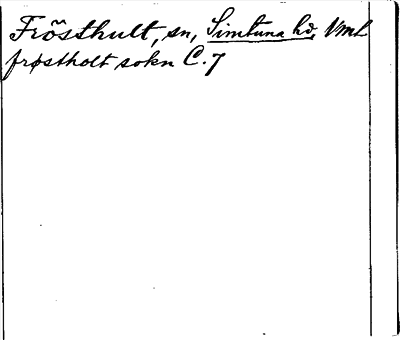 Frösthult, sn, Simtuna hd, Vml
frøstholt sokn C. 7